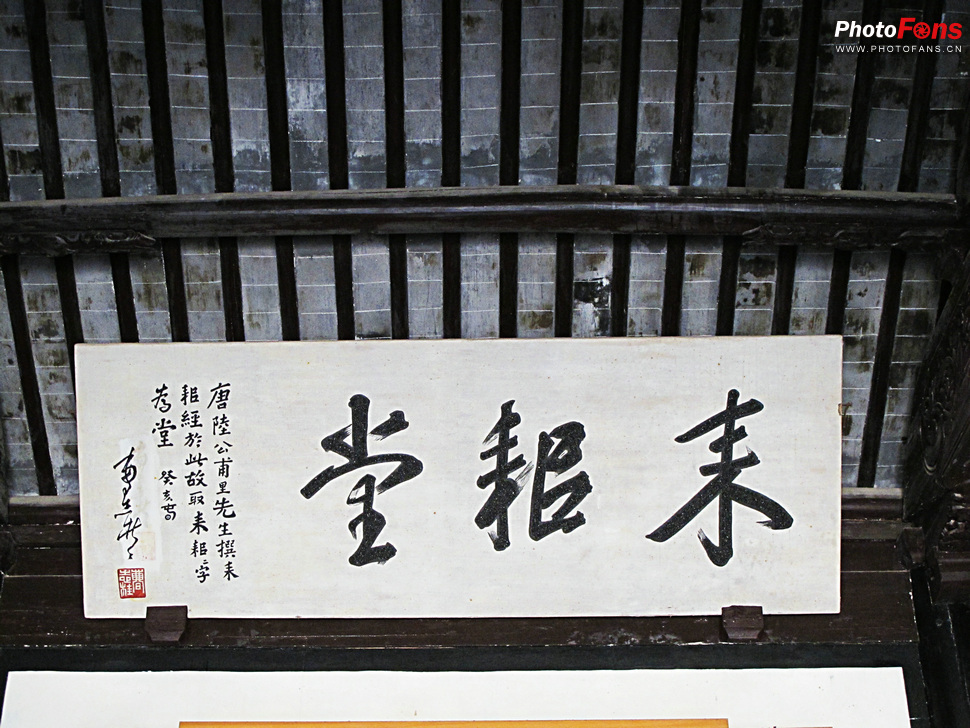 PhotoFans
WWW.PHOTOFANS.CN
耒耜堂
唐陸公甫里先生撰耒
耜經於此故取耒耜二字
為堂
癸亥